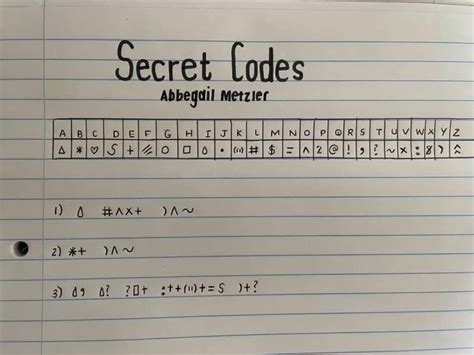 Secret Codes
Abbegail Metzler
A B C D E F G H I J K L M N O P Q R S T U V W X Y Z
△ * ♡ S + ⫻ O □ ◊ • (11) # $ = ^ 2 @ ! , ? ~ x : 8 ) ^
1) ◊ #^x+ )^~
2) *+ )^~
3) ◊, ◊? ?□+ :++(11)+=S )+?